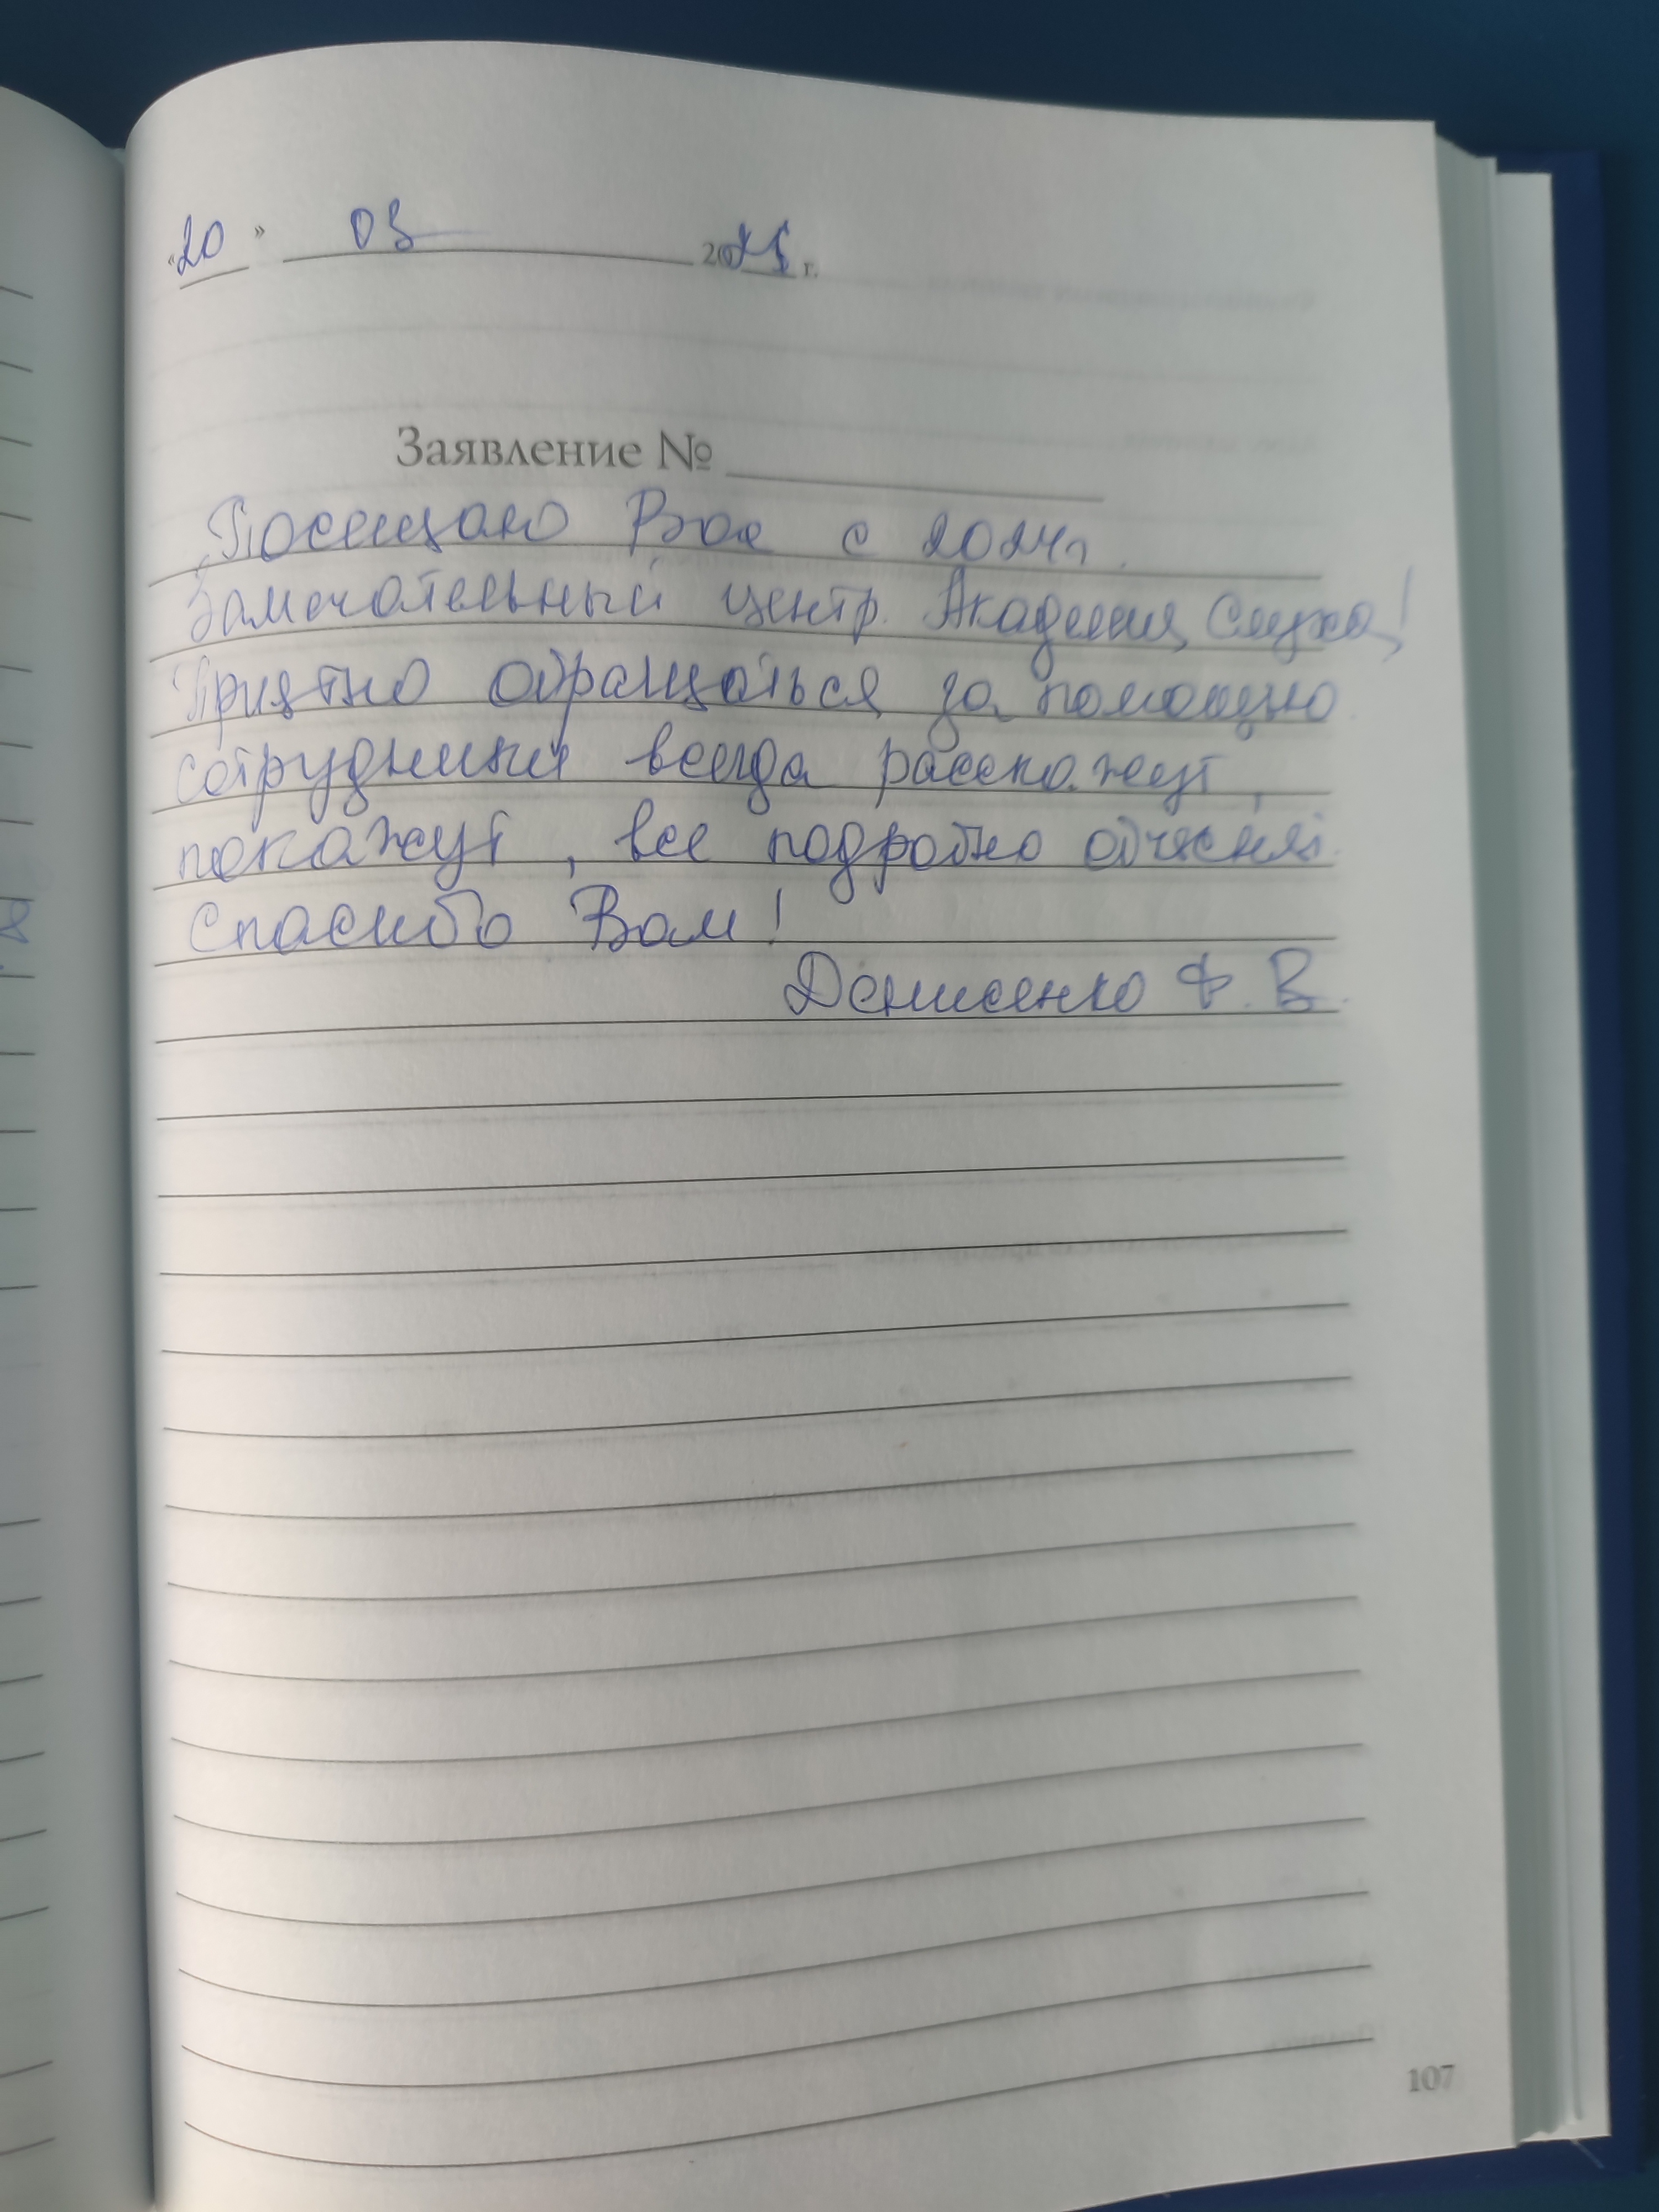 «20» 03 2025 г.
Заявление №
Посещаю Вас с 2024г.
Замечательный центр. Академия Слуха!
Приятно обращаться за помощью
сотрудники всегда расскажут,
покажут, все подробно объяснят.
Спасибо Вам!
Денисенко Ф. В.
107